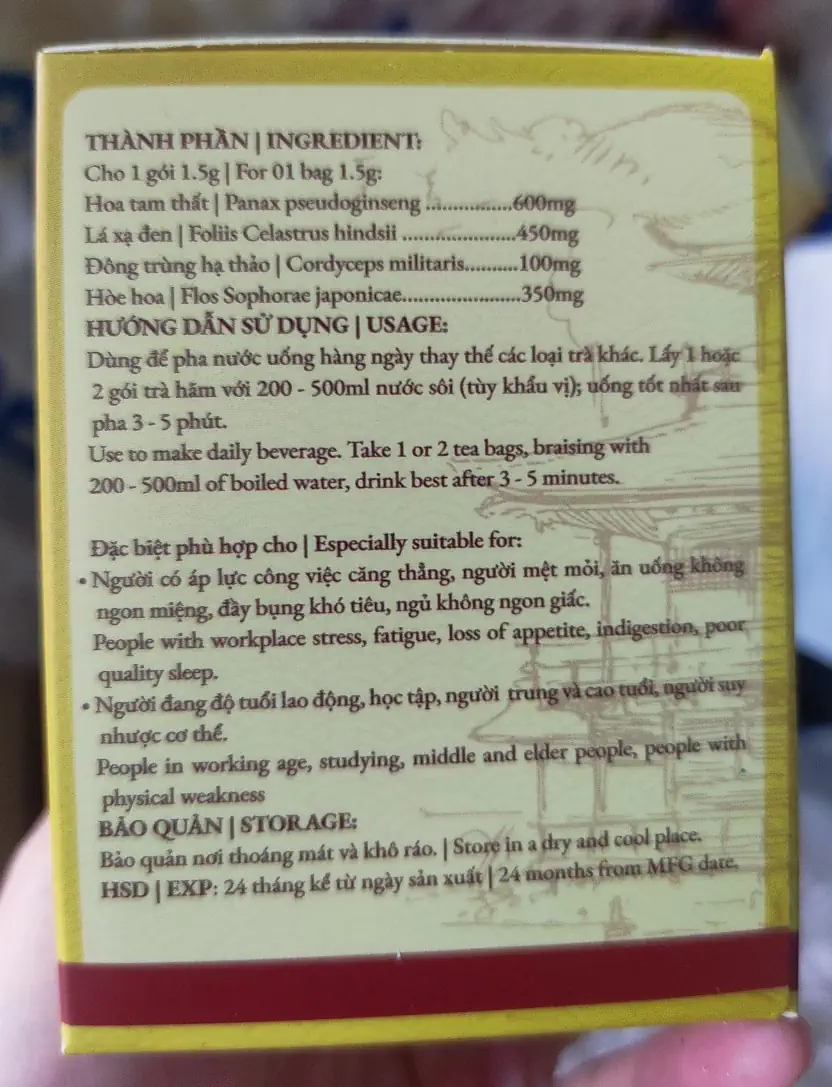 THÀNH PHẦN | INGREDIENT:
Cho 1 gói 1.5g | For 01 bag 1.5g:
Hoa tam thất | Panax pseudoginseng ...............600mg
Lá xạ đen | Foliis Celastrus hindsii ......................450mg
Đông trùng hạ thảo | Cordyceps militaris..........100mg
Hòe hoa | Flos Sophorae japonicae.......................350mg
HƯỚNG DẪN SỬ DỤNG | USAGE:
Dùng để pha nước uống hàng ngày thay thế các loại trà khác. Lấy 1 hoặc
2 gói trà hãm với 200 - 500ml nước sôi (tùy khẩu vị); uống tốt nhất sau
pha 3 - 5 phút.
Use to make daily beverage. Take 1 or 2 tea bags, braising with
200 - 500ml of boiled water, drink best after 3 - 5 minutes.
Đặc biệt phù hợp cho | Especially suitable for:
• Người có áp lực công việc căng thẳng, người mệt mỏi, ăn uống không
ngon miệng, đầy bụng khó tiêu, ngủ không ngon giấc.
People with workplace stress, fatigue, loss of appetite, indigestion, poor
quality sleep.
• Người đang độ tuổi lao động, học tập, người trung và cao tuổi, người suy
nhược cơ thể.
People in working age, studying, middle and elder people, people with
physical weakness
BẢO QUẢN | STORAGE:
Bảo quản nơi thoáng mát và khô ráo. | Store in a dry and cool place.
HSD | EXP: 24 tháng kể từ ngày sản xuất | 24 months from MFG date.